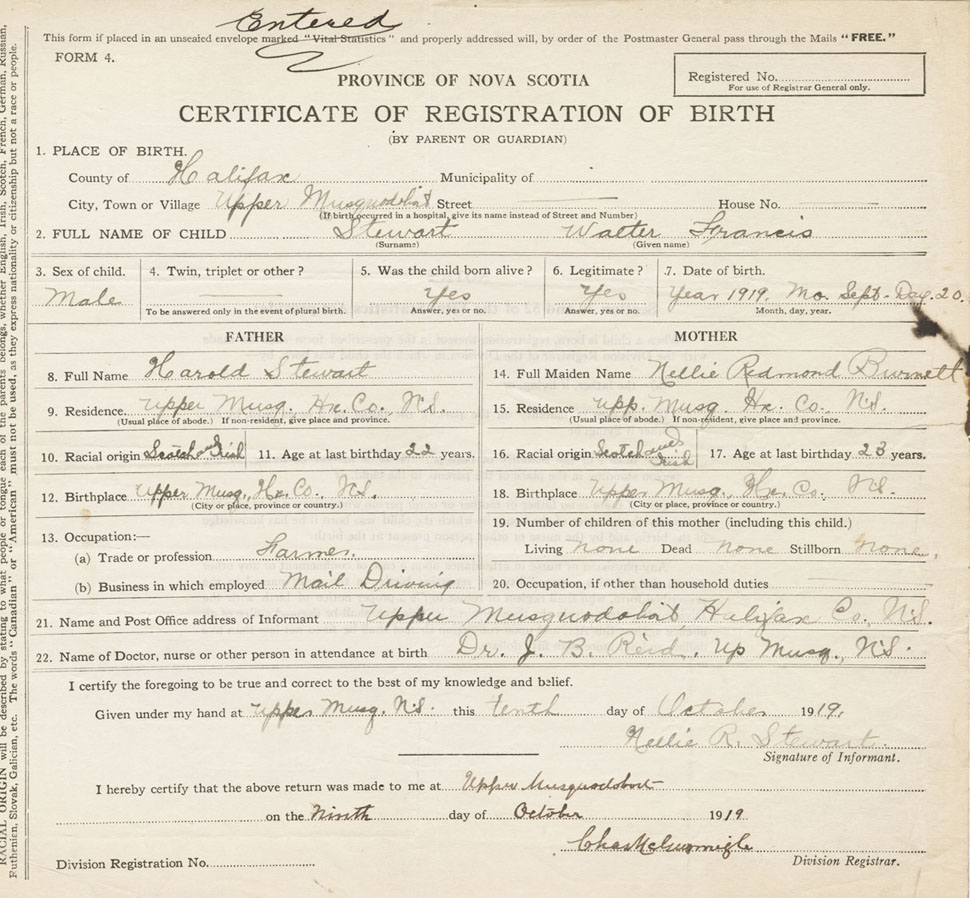 Entered
This form if placed in an unsealed envelope marked "Vital Statistics" and properly addressed will, by order of the Postmaster General pass through the Mails "FREE."
FORM 4.
PROVINCE OF NOVA SCOTIA
Registered No.
For use of Registrar General only.
CERTIFICATE OF REGISTRATION OF BIRTH
(BY PARENT OR GUARDIAN)
1. PLACE OF BIRTH.
County of Halifax Municipality of
City, Town or Village Upper Musquodoboit Street House No.
(If birth occurred in a hospital, give its name instead of Street and Number)
2. FULL NAME OF CHILD Stewart Walter Francis
(Surname) (Given name)
3. Sex of child. 4. Twin, triplet or other? 5. Was the child born alive? 6. Legitimate? 7. Date of birth.
Male Yes Yes Year 1919. Mo. Sept. Day. 20.
To be answered only in the event of plural birth. Answer, yes or no. Answer, yes or no. Month, day, year.
FATHER MOTHER
8. Full Name Harold Stewart 14. Full Maiden Name Nellie Redmond Burnett
9. Residence. Upper Musq. Hx. Co., N.S. 15. Residence Upp. Musq. Hx Co., N.S.
(Usual place of abode.) If non-resident, give place and province. (Usual place of abode.) If non-resident, give place and province.
10. Racial origin Scotch and Irish 11. Age at last birthday 22 years. 16. Racial origin Scotch and Irish 17. Age at last birthday 23 years.
12. Birthplace Upper Musq., Hx. Co., N.S. 18. Birthplace Upper Musq., Hx. Co. N.S.
(City or place, province or country.) (City or place, province or country.)
19. Number of children of this mother (including this child.)
13. Occupation:—
(a) Trade or profession Farmer. Living none Dead none Stillborn none.
(b) Business in which employed Mail Driving 20. Occupation, if other than household duties
21. Name and Post Office address of Informant Upper Musquodoboit, Halifax Co., N.S.
22. Name of Doctor, nurse or other person in attendance at birth Dr. J. B. Reid, Up Musq., N.S.
I certify the foregoing to be true and correct to the best of my knowledge and belief.
Given under my hand at Upper Musq. N.S. this tenth day of October 1919.
Nellie R. Stewart.
Signature of Informant.
I hereby certify that the above return was made to me at Upper Musquodoboit
on the Ninth day of October 1919
Division Registrar.
Division Registration No.
RACIAL ORIGIN will be described by stating to what people or tongue each of the parents belongs, whether English, Irish, Scotch, French, German, Russian,
Ruthenien, Slovak, Galician, etc. The words "Canadian" or "American" must not be used, as they express nationality or citizenship but not a race or people.